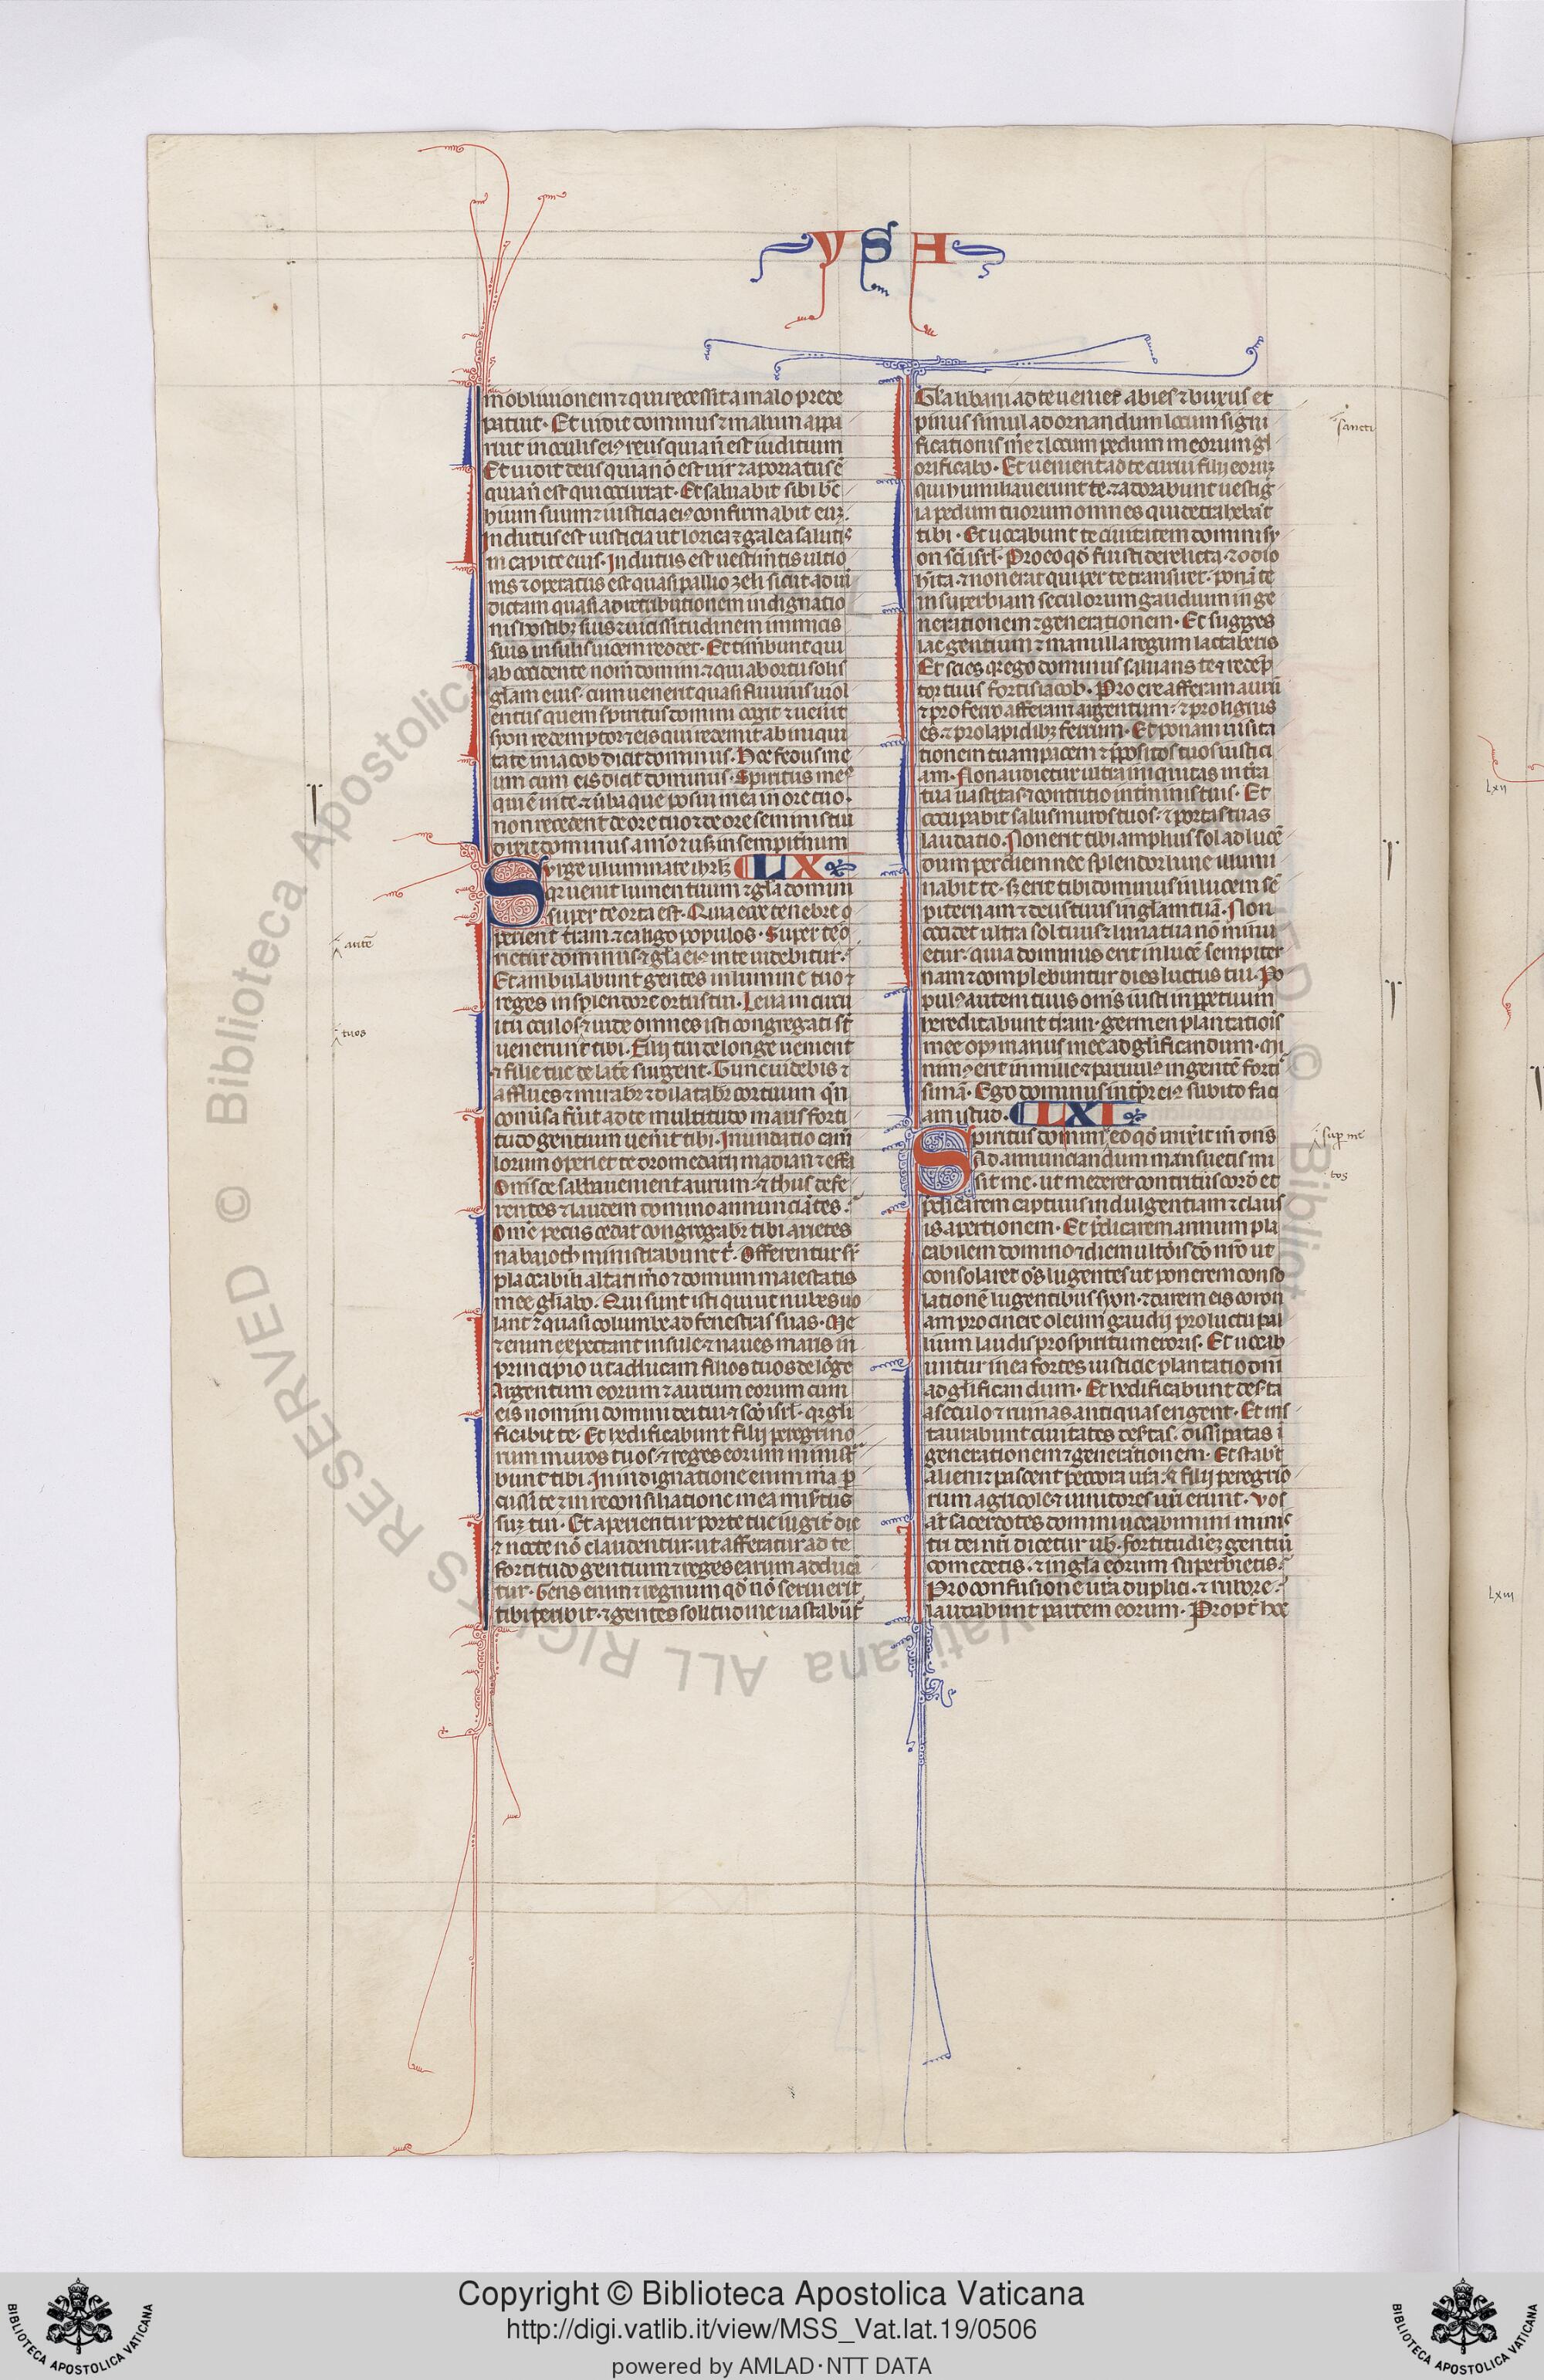 YSA
in obliuionem ⁊ qui recessit a malo prede
patuit · Et uidit dominus ⁊ malum appa
ruit in oculis eiꝰ reus quia ñ est iuditium
Et uidit deus quia nõ est uir ⁊ aporiatus ẽ
quia ñ est qui occurrat · Et saluabit sibi
suum ⁊ iusticia eiꝰ confirmabit
Indutus est iusticia ut lorica ⁊ galea salutis
in capite eius · Indutus est uestim̃tis ultio
nis ⁊ opertus est quasi pallio zeli sicut ad uin
dictam quasi ad retributionem indignatio
nis hostibꝫ suis ⁊ uicissitudinem inimicis
suis insulis uicem reddet · Et timebunt qui
ab occidente nom̃ domini ⁊ qui ab ortu solis
gl̃am eius · cum uenerit quasi fluuius uiol
entus quem spiritus domini cogit ⁊ uen̾it
syon redemptor ⁊ eis qui redeunt ab iniqui
tate in iacob dicit dominus · Hoc fedus me
um cum eis dicit dominus · Spiritus meꝰ
qui ẽ in te ⁊ ũba que posui mea in ore tuo ·
non recedent de ore tuo ⁊ de ore seminis tui
dixit dominus amõ ⁊ usꝫ in sempit̾num
Surge illuminare ihrl̃ꝫ LX
qꝛ uenit lumen tuum ⁊ gl̃a domini
super te orta est · Quia ecce tenebre o
perient t̾ram ⁊ caligo populos · Super te o
rietur dominus ⁊ gl̃a eiꝰ in te uidebitur ·
Et ambulabunt gentes in lumine tuo ⁊
reges in splendore ortus tui · Leua in circu
itu oculos ⁊ uide omnes isti congregati st̃
uenerunt tibi · Filii tui de longe uenient
⁊ filie tue de lat̾e surgent · Tunc uidebis ⁊
afflues ⁊ mirabr̃ ⁊ dilatabr̃ cor tuum qñ
conũsa fũit ad te multitudo maris forti
tudo gentium uen̾it tibi · Inundatio cam
lorum operiet te dromedarii madian ⁊ effa
Om̃s de sabba uenient aurum ⁊ thus defe
rentes ⁊ laudem domino annunciãtes ·
Om̃e pecus cedar congregabr̃ tibi arietes
nabaioth ministrabunt t̾ · Offerentur sr̃
placabili altari m̃o ⁊ domum maiestatis
mee gl̃iabo · Qui sunt isti qui ut nubes uo
lant ⁊ quasi columbe ad fenestras suas · Me
⁊ enim expectant insule ⁊ naues maris in
principio ut adducam filios tuos de lõge
Argentum eorum ⁊ aurum eorum cum
eis nomini domini dei tui ⁊ sc̃o isrl̃ · qꝛ gl̃i
ficabit te · Et hedificabunt filii peregrino
rum muros tuos ⁊ reges eorum minist̾
bunt tibi · In indignatione enim m̃a p̱
cussi te ⁊ in reconsiliatione mea misertus
suꝫ tui · Et aperientur porte tue iugit̾ die
⁊ nocte nõ claudentur · ut afferatur ad te
fortitudo gentium ⁊ reges earum adduca
tur · Gens enim ⁊ regnum qd̃ nõ seruierit
tibi peribit · ⁊ gentes solitudine uastabũt̾
Gl̃a libani ad te ueniet abies ⁊ buxus et
pinus simul ad ornandum locum sigtii
ficationis m̃e ⁊ locum pedum meorum gl
orificabo · Et uenient ad te curui filii eorum
qui humiliauerunt te · ⁊ adorabunt uestig
ia pedum tuorum omnes qui detrahebãt
tibi · Et uocabunt te ciuitatem domini sy
on sc̃i isrl̃ · Pro eo qd̃ fuisti derelicta · ⁊ odio
h̾ita · ⁊ non erat qui per te transiret · ponã te
in superbiam seculorum gaudium in ge
nerationem ⁊ generationem · Et sugges
lac gentium ⁊ mamilla regum lactaberis
Et scies qꝛ ego dominus saluans te ⁊ redẽp
tor tuus fortis iacob · Pro ere afferam aurũ
⁊ pro ferro afferam argentum · ⁊ pro lignis
es · ⁊ pro lapidibꝫ ferrum · Et ponam uisita
tionem tuam pacem ⁊ p̃positos tuos iustici
am · Non audietur ultra iniquitas in t̾ra
tua uastitas ⁊ contritio in t̾minis tuis · Et
occupabit salus muros tuos · ⁊ portas tuas
laudatio · Non erit tibi amplius sol ad lucẽ
dum per diem nec splendor lune illumi
nabit te · sꝫ erit tibi dominus in lucem sẽ
piternam ⁊ deus tuus in gl̃am tuã · Non
occidet ultra sol tuus ⁊ luna tua nõ minu
etur · quia dominus erit in lucẽ sempiter
nam ⁊ complebuntur dies luctus tui · Po
pulꝰ autem tuus om̃s iusti in p̱petuum
hereditabunt t̾ram · germen plantatiois
mee opꝰ manus mee ad gl̃ificandum · Mi
nimꝰ erit in mille ⁊ paruulꝰ in gentẽ forti
simã · Ego dominus in tp̃re eiꝰ subito faci
am istud · LXI
Spiritus domini eo qd̃ unx̾it m̃ dñs
Ad annunciandum mansuetis mi
sit me · ut mederer contritis cord̾e et
p̃dicarem captiuis indulgentiam ⁊ claus
is apertionem · Et p̃dicarem annum pla
cabilem domino ⁊ diem ultõis dõ nr̃o ut
consolarer om̃s lugentes ut ponerem conso
lationẽ lugentibus syon · ⁊ darem eis coron
am pro cinere oleum gaudii pro luctu pal
lium laudis pro spiritu meroris · Et uocab
untur in ea fortes iusticie plantatio dñi
ad gl̃ificandum · Et hedificabunt des̾ta
a seculo ⁊ ruinas antiquas erigent · Et ins
taurabunt ciuitates des̾tas · dissipatas ĩ
generationem ⁊ generationem · Et stabũt
alieni ⁊ pascent peccora ur̃a · ⁊ filii peregrio
rum agricole ⁊ uinitores ur̃i erunt · Vos
at̃ sacerdotes domini uocabimini minis
tri dei nr̃i dicetur ub̾ · fortitudieꝫ gentiũ
comedetis · ⁊ in gl̃a eorum superbietis ·
Pro confusione ur̃a duplici · ⁊ rubore ·
laudabunt partem eorum · Propt̾ hoc
autẽ
tuos
sancti
sup̱ me
tos
Lxii
Lxiii
© Biblioteca Apostolica Vaticana ALL RIGHTS RESERVED
Copyright © Biblioteca Apostolica Vaticana
http://digi.vatlib.it/view/MSS_Vat.lat.19/0506
powered by AMLAD·NTT DATA
BIBLIOTECA APOSTOLICA VATICANA
BIBLIOTECA APOSTOLICA VATICANA